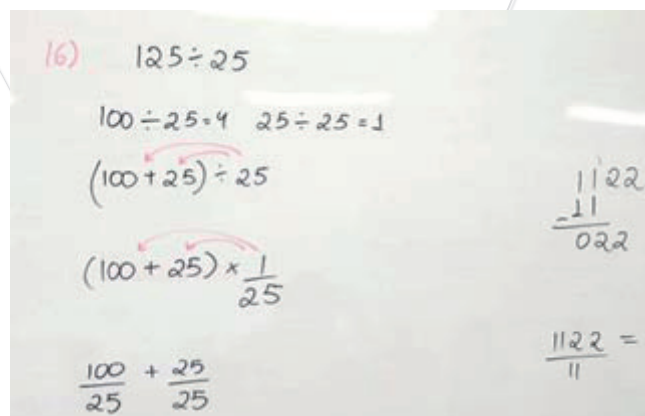 16) 125 ÷ 25
100 ÷ 25 = 4 25 ÷ 25 = 1
(100 + 25) ÷ 25
(100 + 25) × 1/25
100/25 + 25/25
1122
-11
022
1122/11 =